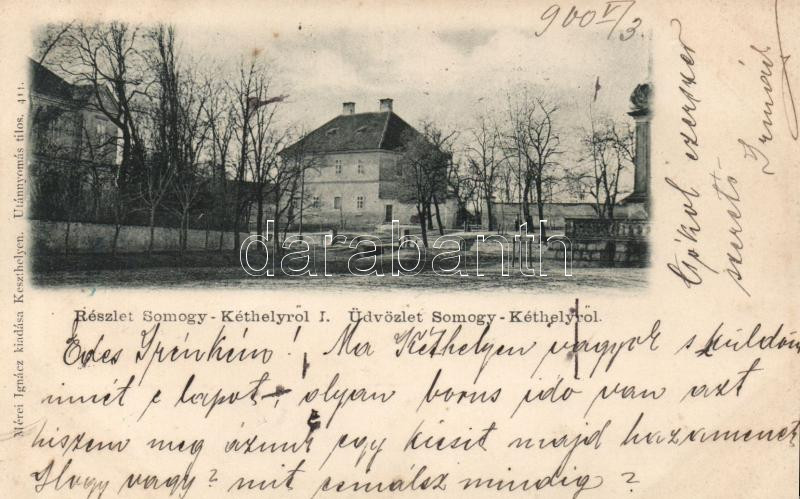 900 V/3.
Mérei Ignácz kiadása Keszthelyen. Utánnyomás tilos. 411.
darabanth
Részlet Somogy-Kéthelyről I. Üdvözlet Somogy-Kéthelyről.
Édes Irénkém! Ma Kéthelyen vagyok s küldöm
innét e lapot, olyan borus idő van azt
hiszem meg ázunk egy kicsit majd hazamenet
Hogy vagy? mit csinálsz mindig?
Csókol ezerszer
szerető